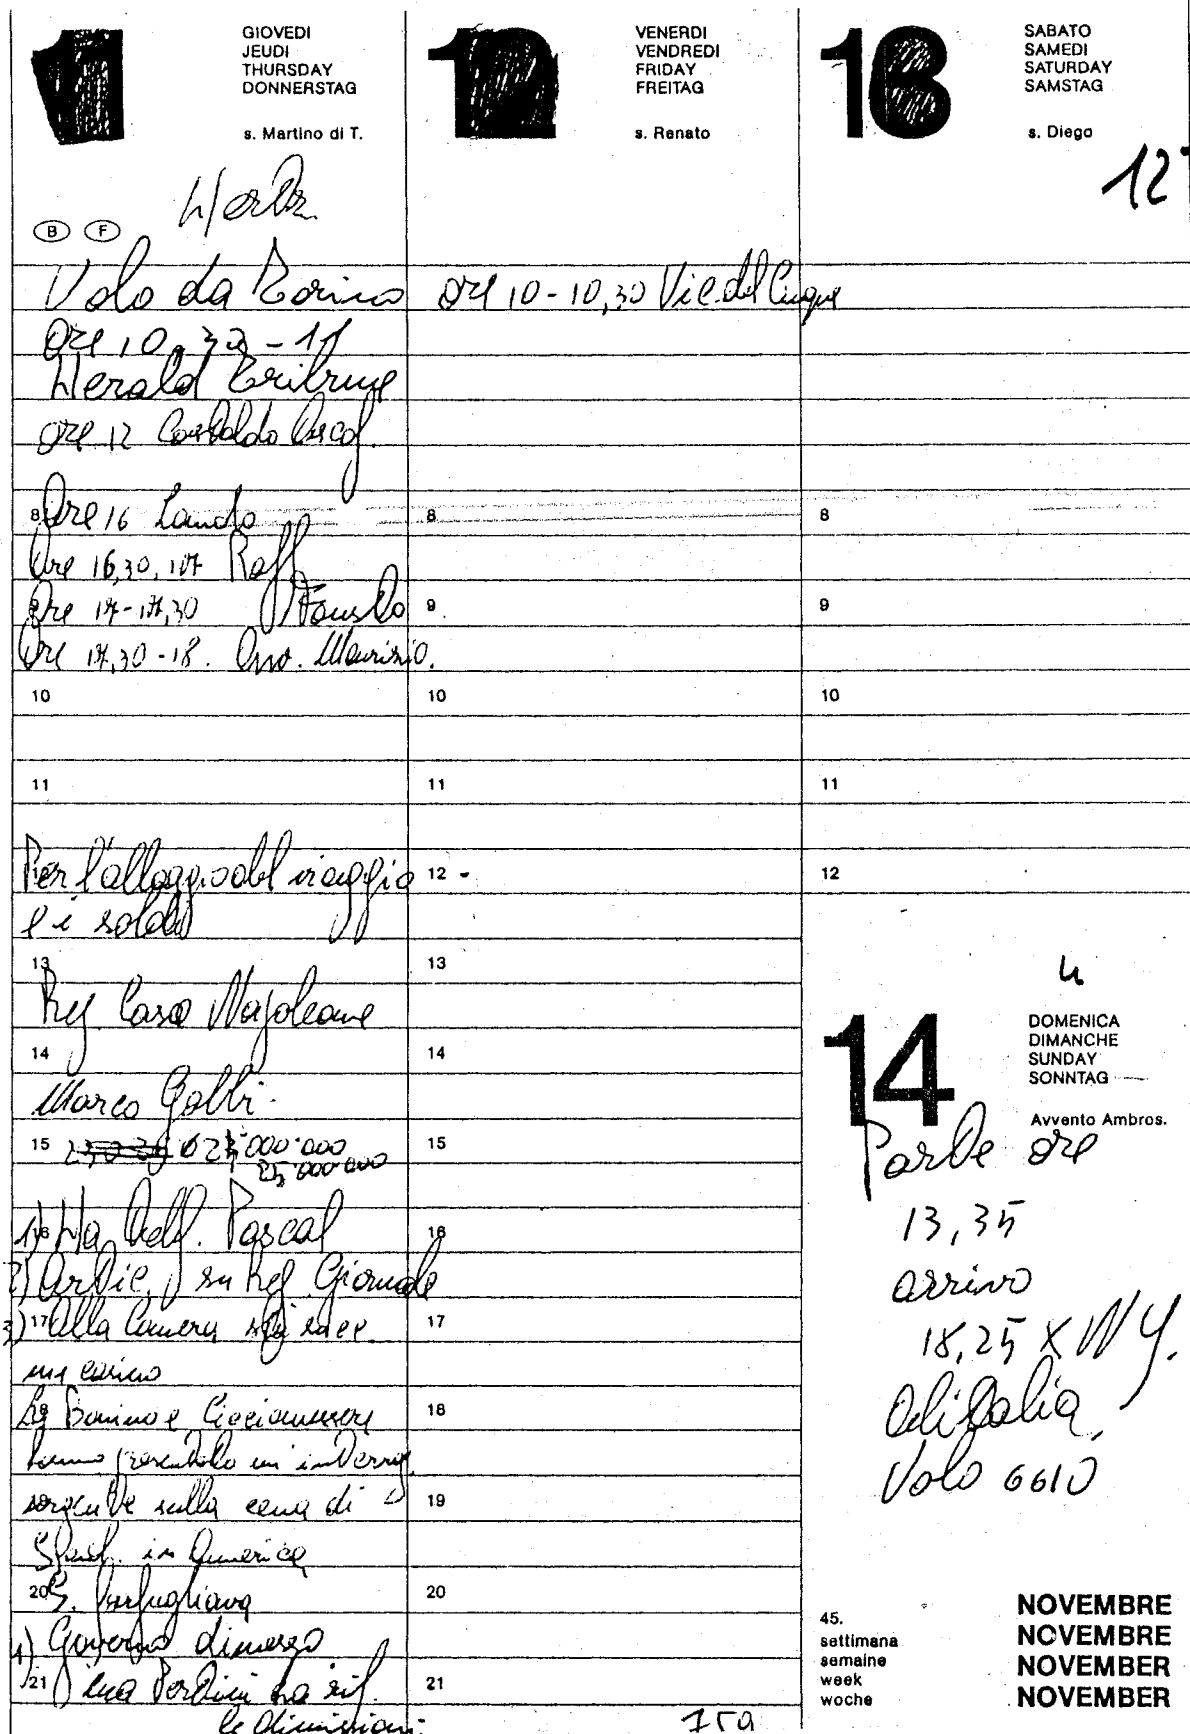 11
GIOVEDI
JEUDI
THURSDAY
DONNERSTAG
s. Martino di T.
B F
Volo da Torino
Ore 10,30-11
Herald Tribune
Ore 12
8 Ore 16 Lando
Ore 16,30, 17 Raff
Ore 17-17,30 Fausto
Ore 17,30-18. Avv. Maurizio.
10
11
Per l'alloggio del viaggio
e i soldi
13
Rif Casa Napoleone
14
Marco Gobbi.
15 625.000.000
25.000.000
16
1) Ha Pascal
2) su Rif. Giornale
3) 17 Alla Camera
un casino
18 Bonino e Cicciomessere
hanno presentato un interrog.
urgente sulla cena di
in America
20
4) Governo dimesso
21 ma Pertini ha rif.
le dimissioni.
12
VENERDI
VENDREDI
FRIDAY
FREITAG
s. Renato
Ore 10-10,30 Vic. del Cinque
8
9
10
11
12 -
13
14
15
16
17
18
19
20
21
13
SABATO
SAMEDI
SATURDAY
SAMSTAG
s. Diego
12
8
9
10
11
12
4
14
DOMENICA
DIMANCHE
SUNDAY
SONNTAG
Avvento Ambros.
Parte ore
13,35
arrivo
18,25 X NY.
Alitalia
Volo 6610
45.
settimana
semaine
week
woche
NOVEMBRE
NOVEMBRE
NOVEMBER
NOVEMBER